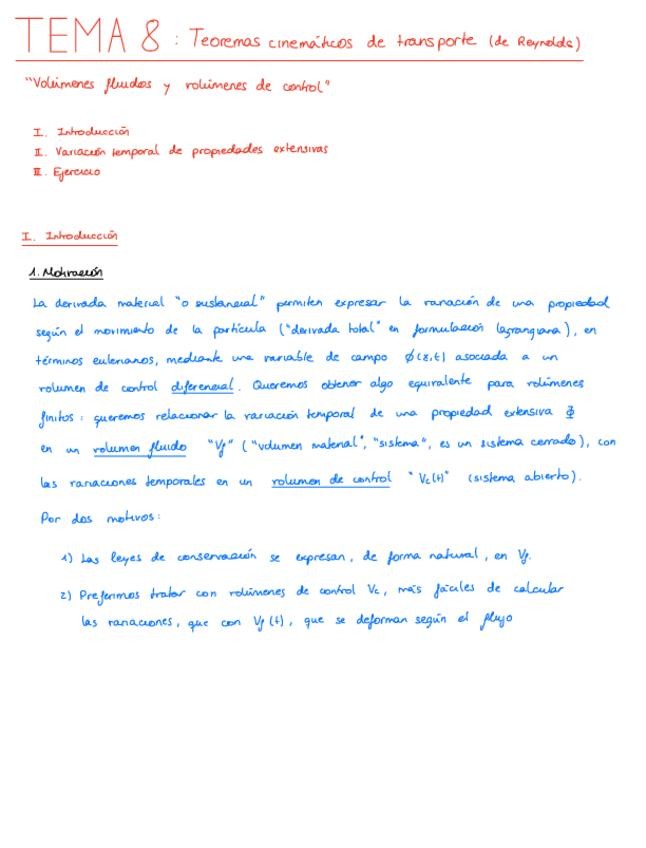 TEMA 8: Teoremas cinemáticos de transporte (de Reynolds)
"Volúmenes fluidos y volúmenes de control"
I. Introducción
II. Variación temporal de propiedades extensivas
III. Ejercicio
I. Introducción
1. Motivación
La derivada material "o sustancial" permiten expresar la variación de una propiedad
según el movimiento de la partícula ("derivada total" en formulación lagrangiana), en
términos eulerianos, mediante una variable de campo ϕ(x,t) asociada a un
volumen de control diferencial. Queremos obtener algo equivalente para volúmenes
finitos: queremos relacionar la variación temporal de una propiedad extensiva Φ
en un volumen fluido "Vf" ("volumen material", "sistema", es un sistema cerrado), con
las variaciones temporales en un volumen de control "Vc(t)" (sistema abierto).
Por dos motivos:
1) Las leyes de conservación se expresan, de forma natural, en Vf.
2) Preferimos tratar con volúmenes de control Vc, más fáciles de calcular
las variaciones, que con Vf(t), que se deforman según el flujo